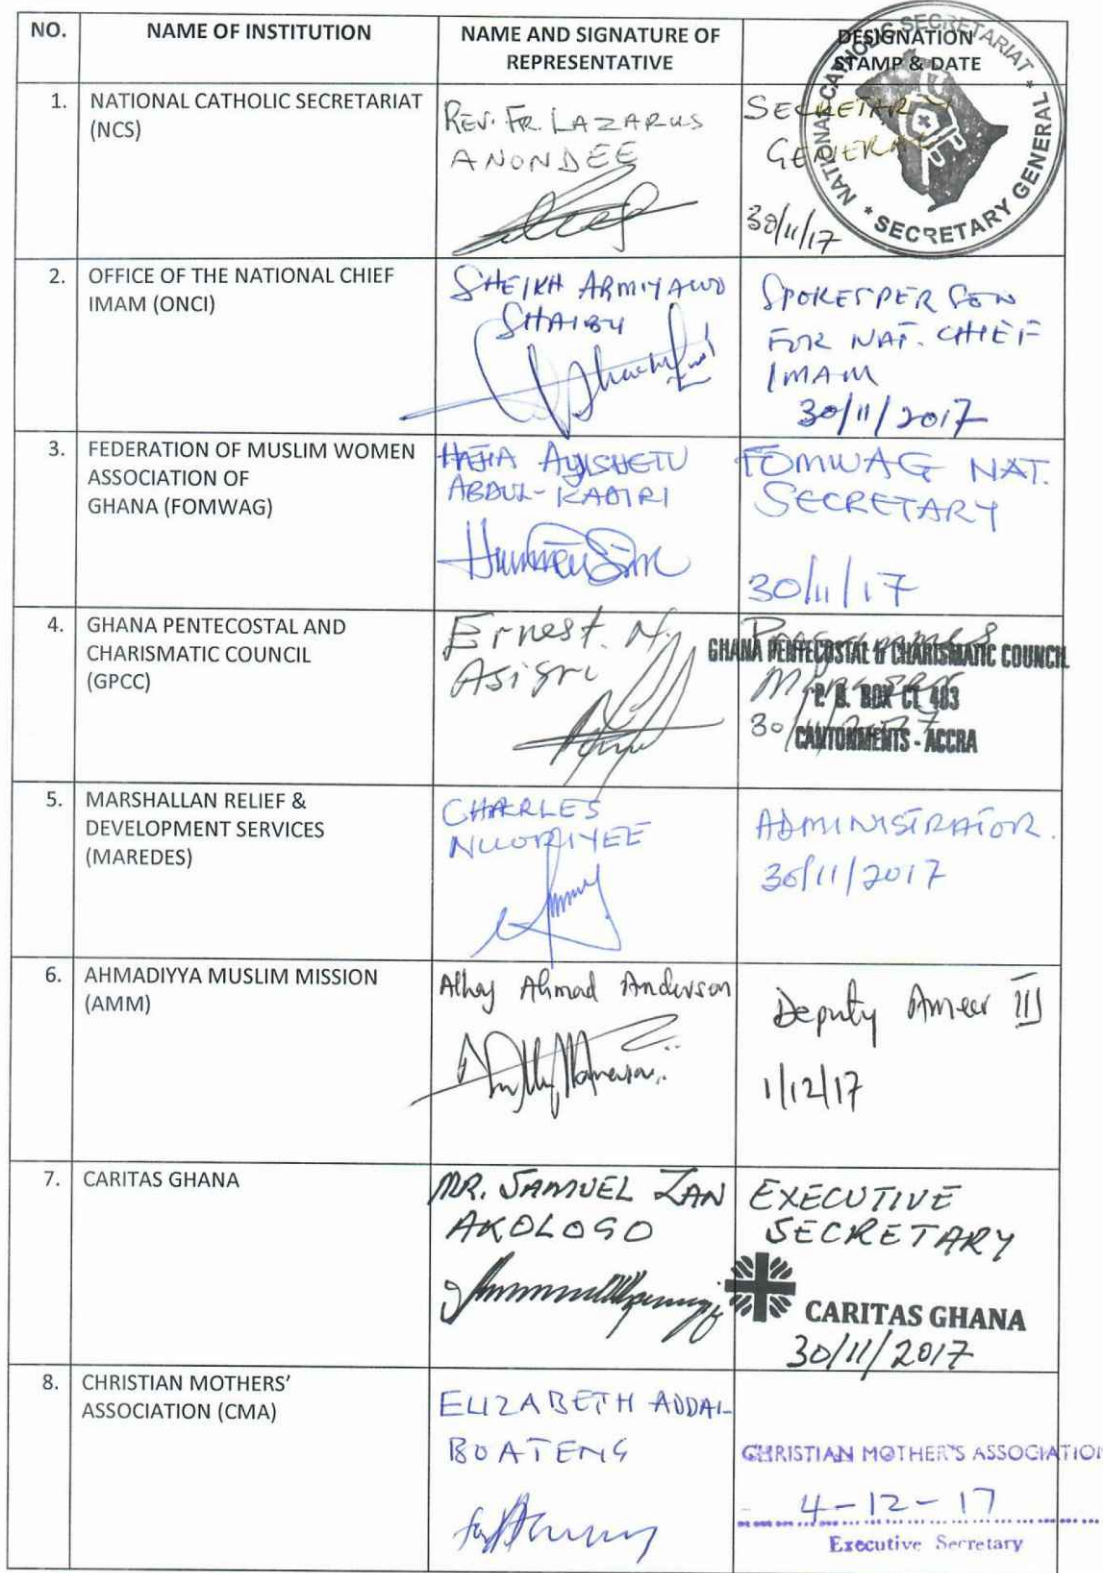 NO.
NAME OF INSTITUTION
NAME AND SIGNATURE OF
REPRESENTATIVE
DESIGNATION
STAMP & DATE
1.
NATIONAL CATHOLIC SECRETARIAT
(NCS)
REV. FR. LAZARUS
ANONDEE
SECRETARY
GENERAL
30/11/17
NATIONAL CATHOLIC SECRETARIAT
* SECRETARY GENERAL *
2.
OFFICE OF THE NATIONAL CHIEF
IMAM (ONCI)
SHEIKH ARMIYAWO
SHAIBU
SPOKESPERSON
FOR NAT. CHIEF
IMAM
30/11/2017
3.
FEDERATION OF MUSLIM WOMEN
ASSOCIATION OF
GHANA (FOMWAG)
AYISHETU
ABDUL-KADIRI
FOMWAG NAT.
SECRETARY
30/11/17
4.
GHANA PENTECOSTAL AND
CHARISMATIC COUNCIL
(GPCC)
Ernest. N.
Asigri
Programmes
GHANA PENTECOSTAL & CHARISMATIC COUNCIL
P. O. BOX CT 483
30/11/2017
CANTONMENTS - ACCRA
5.
MARSHALLAN RELIEF &
DEVELOPMENT SERVICES
(MAREDES)
CHARLES
ADMINISTRATOR.
30/11/2017
6.
AHMADIYYA MUSLIM MISSION
(AMM)
Alhaj Ahmad Anderson
Deputy Ameer III
1/12/17
7.
CARITAS GHANA
MR. SAMUEL ZAN
AKOLOGO
EXECUTIVE
SECRETARY
CARITAS GHANA
30/11/2017
8.
CHRISTIAN MOTHERS'
ASSOCIATION (CMA)
ELIZABETH ADDAI-
BOATENG
CHRISTIAN MOTHER'S ASSOCIATION
4-12-17
Executive Secretary